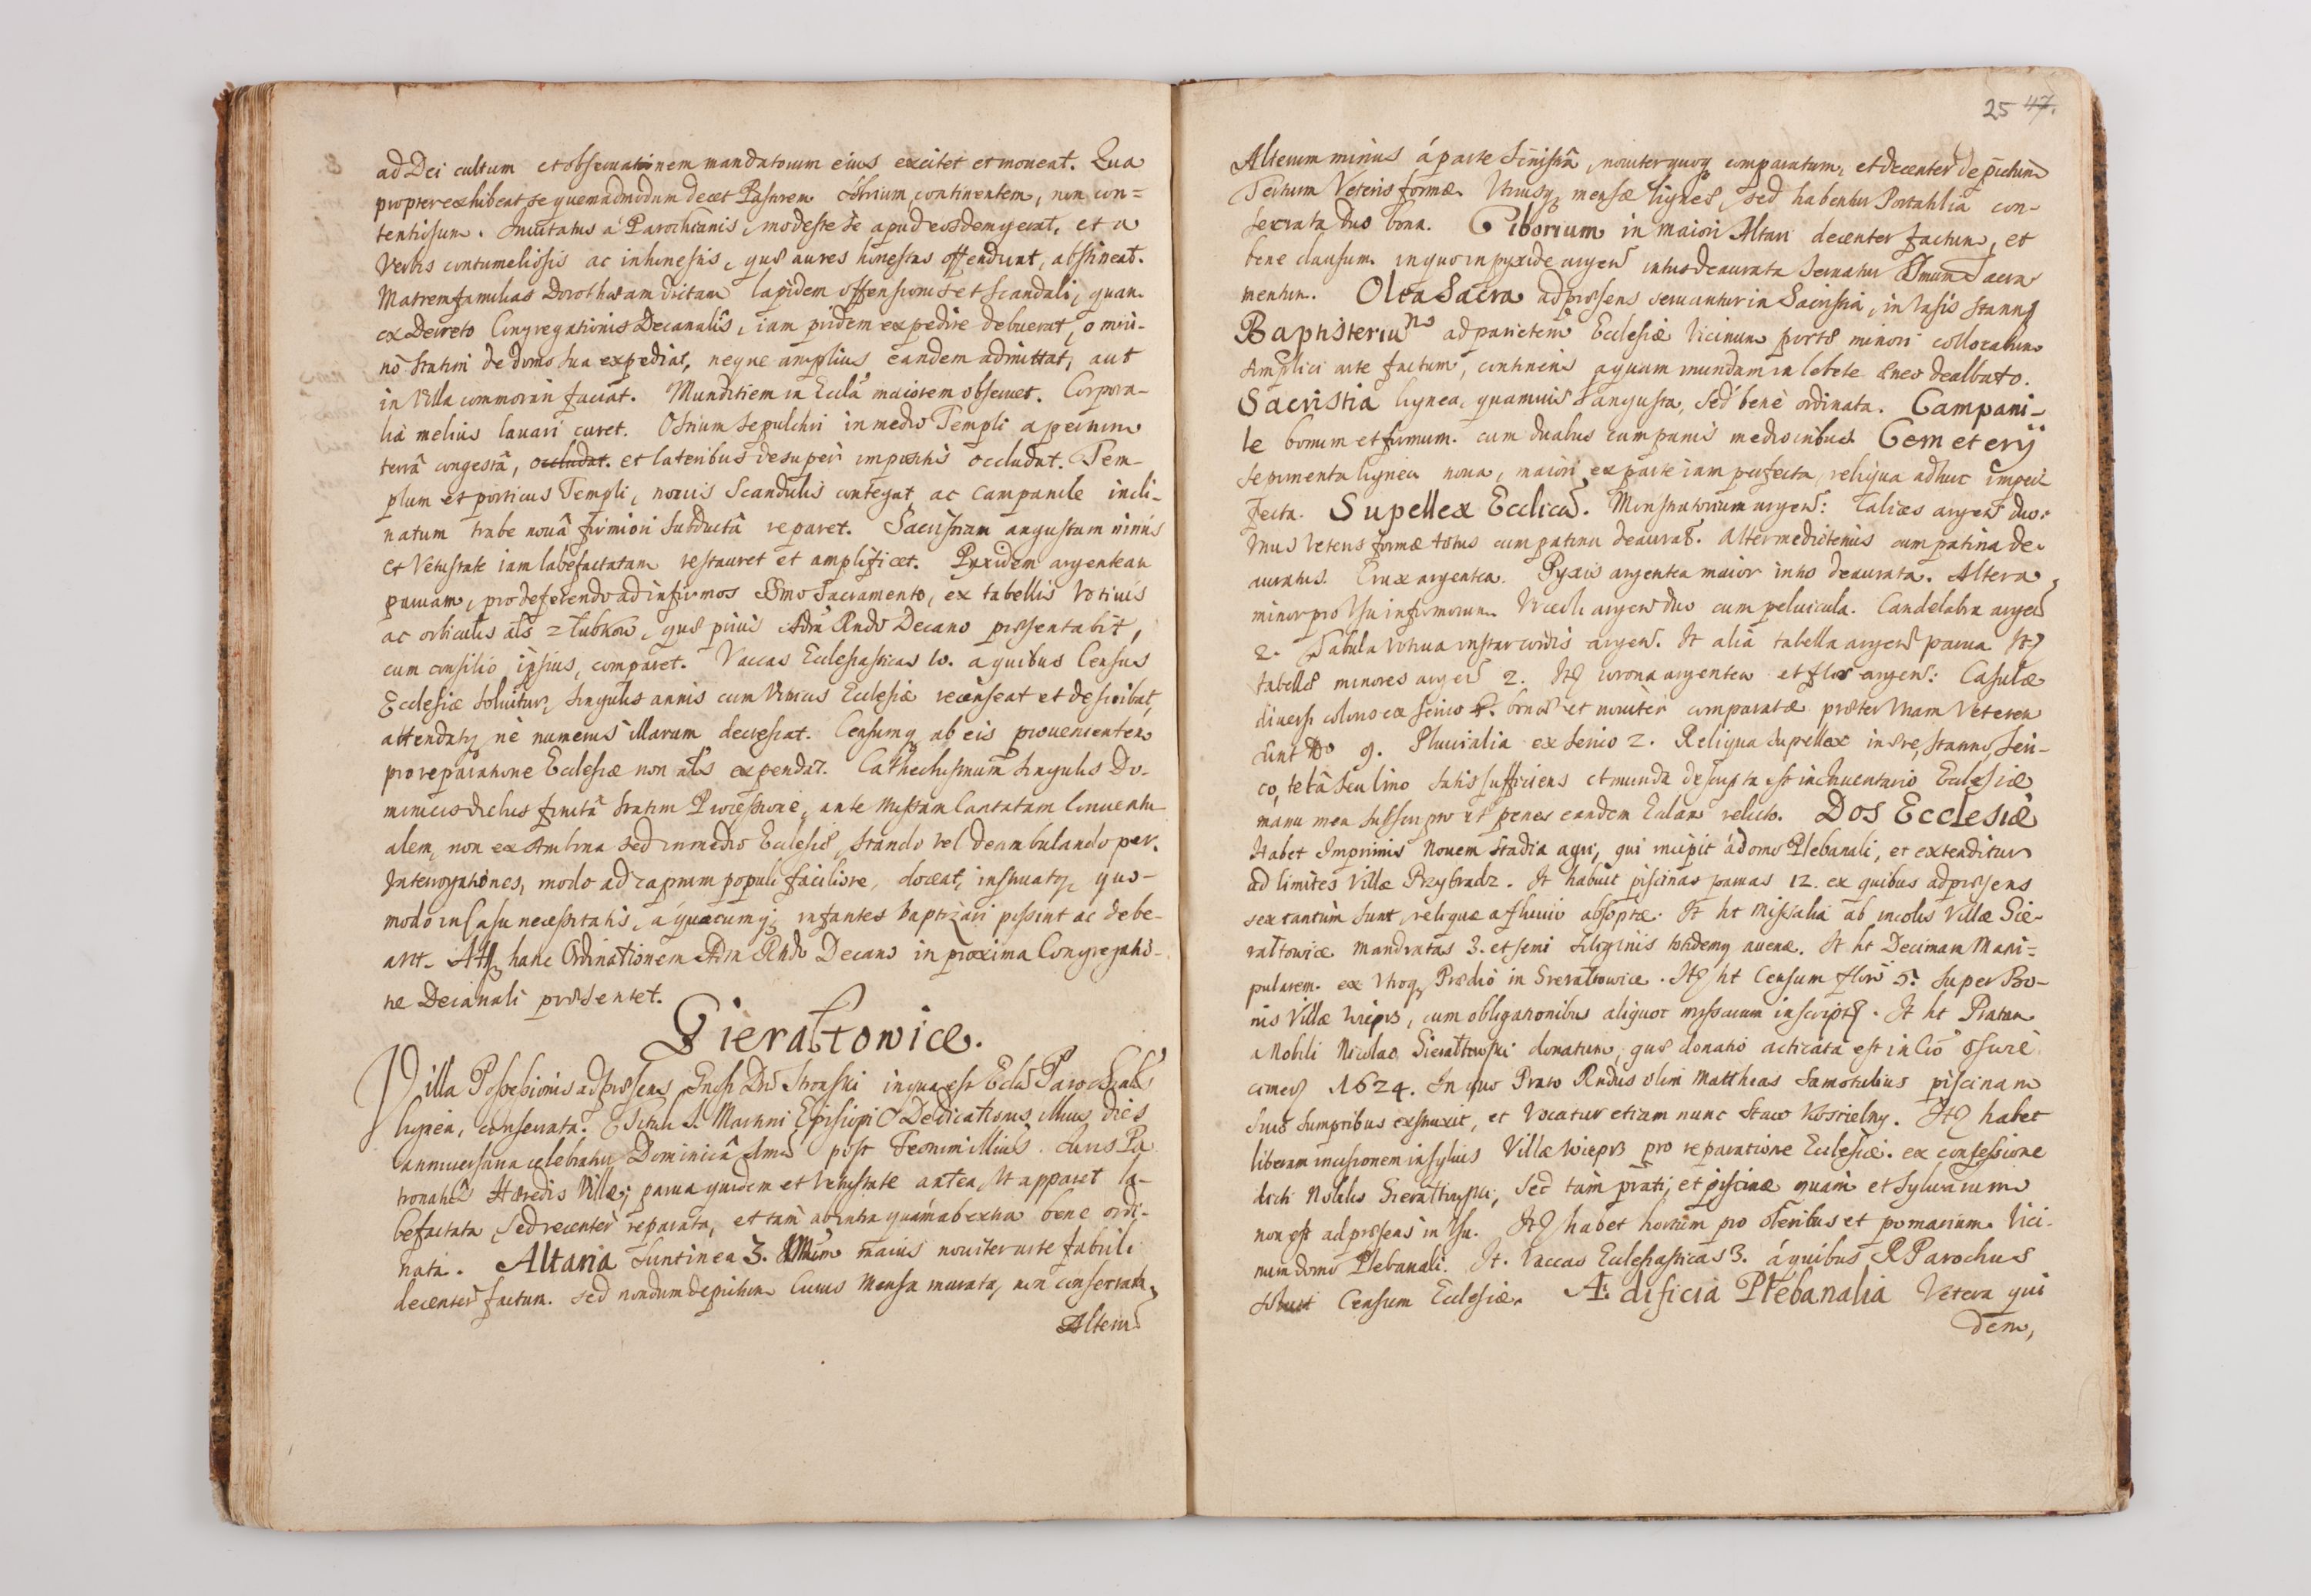 ad Dei cultum et observationem mandatorum eius excitet et moneat. Qua
propter exhibeat se quemadmodum decet Pastorem sobrium continentem, non con=
tentiosum. Invitatus á Parochianis, modeste se apud eosdem gerat, et a
Verbis contumeliosis ac inhonestis, quæ aures honestas offendunt, abstineat.
Matremfamilias Dorotheam dictam lapidem offensionis et scandali, quam
ex Decreto Congregationis Decanalis, iam pridem expedire debuerat, omni-
no statim de domo sua expediat, neque amplius eandem admittat, aut
in Villa commorari faciat. Munditiem in Eccla maiorem observet. Corpora-
lia melius lavari curet. Ostium sepulchri in medio Templi apertum
terrâ congestâ, occludat. et lateribus desuper impositis occludat. Tem-
plum et porticus Templi, novis Scandulis contegat ac campanile incli-
natum trabe novâ firmiori subductâ reparet. Sacristiam angustam nimis
et Vetustate iam labefactatam restauret et amplificet. Pyxidem argenteam
parvam, pro deferendo ad infirmos SSmo Sacramento, ex tabellis Votivis
ac orbiculis als z łubkow, quæ prius Adm Rndo Decano præsentabit,
cum consilio ipsius, comparet. Vaccas Ecclesiasticas 10. a quibus Census
Ecclesiæ solvitur, singulis annis cum Vitricis Ecclesiæ recenseat et describat,
attendatq ne numerus illarum decrescat. Censumq ab eis provenientem
pro reparatione Ecclesiæ non als expendat. Cathechismum singulis Do-
minicis diebus finitâ statim Processione, ante Missam Cantatam Conventu-
alem, non ex Ambona sed in medio Ecclesiæ, stando vel deambulando per
Interrogationes, modo ad captum populi faciliore, doceat, insinuatq quo-
modo in Casu necessitatis, á quocumq; infantes baptizari possint ac debe-
ant. Atq hanc Ordinationem Adm Rndo Decano in proxima Congregatio-
ne Decanali præsentet.
Gierałtowice.
Villa Possessionis ad præsens Gnosi Dni Stronski in qua est Eccla Parochialis
lignea, consecrata. Tituli S. Martini Episcopi Dedicationis illius dies
anniversaria celebratur Dominicâ post Festum illius. Iuris Pa
tronatus Hæredis Villæ; parva quidem et Vetustate antea, Ut apparet la-
befactata, sed recenter reparata, et tam ab intra quám ab extra bene ordi-
nata. Altaria sunt in ea 3. Unum maius noviter arte fabrili
decenter factum. sed nondum depictum Cuius Mensa murata, non consecrata.
Alterum
25 47.
Alterum minus á parte Sinistra, noviter quoq comparatum, et decenter depictum
Tertium Veteris formæ. Utriusq mensæ ligneæ, sed habentur Portatilia con-
secrata duo bona. Ciborium in maiori Altari decenter factum, et
bene clausum. in quo in pyxide argen intus deaurata servatur SSmum Sacra
mentum. Olea Sacra ad præsens servantur in Sacristia, in Vasis stanneis
Baptisterium ad parietem Ecclesiæ Vicinum portæ minori collocatum
simplici arte factum, continens aquam mundam in lebete æneo dealbato.
Sacristia lignea, quamvis angusta, sed benè ordinata. Campani-
le bonum et firmum. cum duabus campanis mediocribus. Cemeterij
sepimenta lignea nova, maiori ex parte iam perfecta, reliqua adhuc imper
fecta. Supellex Ecclica. Monstratorium argen: Calices argen duo:
Unus Veteris formæ totus cum patina deaurat. alter mediotenus cum patina de-
auratus. Crux argentea. Pyxis argentea maior intus deaurata. Altera
minor pro Usu infirmorum. Urceoli argen duo cum pelvicula. Candelabra argen
2. Tabula Votiva instar cordis argen. It alia tabella argen parva It
tabellæ minores argen 2. It corona argentea et flos argen: Casulæ
diversi coloris ex serico bonæ et noviter comparatæ præter Unam Veterem
sunt No 9. Pluvialia ex serico 2. Reliqua supellex in ære, stanno, seri-
co, tela seu lino satis sufficiens et munda descripta est in Inventario Ecclesiæ
manu mea subscripto et penes eandem Eccliam relicto. Dos Ecclesiæ
Habet Imprimis Novem stadia agri, qui incipit á domo Plebanali, et extenditur
ad limites Villæ Przybradz. It habuit piscinas parvas 12. ex quibus ad præsens
sex tantùm sunt, reliquæ a fluvio absorptæ. It ht Missalia ab incolis Villæ Gie-
rałtowice Mandratas 3. et semi siliginis totidemq avenæ. It ht Decimam Mani-
pularem. ex Utroq Prædio in Gierałtowice. It ht Censum flor 5. super Bo-
nis Villæ Wieprz, cum obligationibus aliquot missarum inscript. It ht Pratum
a Nobili Nicolao Gierałtowski donatum, quæ donatio acticata est in Osuie
cimen 1624. In quo Prato Rndus olim Matthias Samotulius piscinam
suis sumptibus exstruxit, et Vocatur etiam nunc Staw Koscielny. It habet
liberam incisionem in sylvis Villæ Wieprz pro reparatione Ecclesiæ. ex concessione
dicti Nobilis Gierałtowski, sed tàm prati, et piscinæ quàm et Sylvarum
non est ad præsens in Usu. It habet hortum pro oleribus et pomarium Vici-
num domo Plebanali. It. Vaccas Ecclesiasticas 3. á quibus R Parochus
solvit Censum Ecclesiæ. Ædificia Plebanalia Vetera qui
dem,